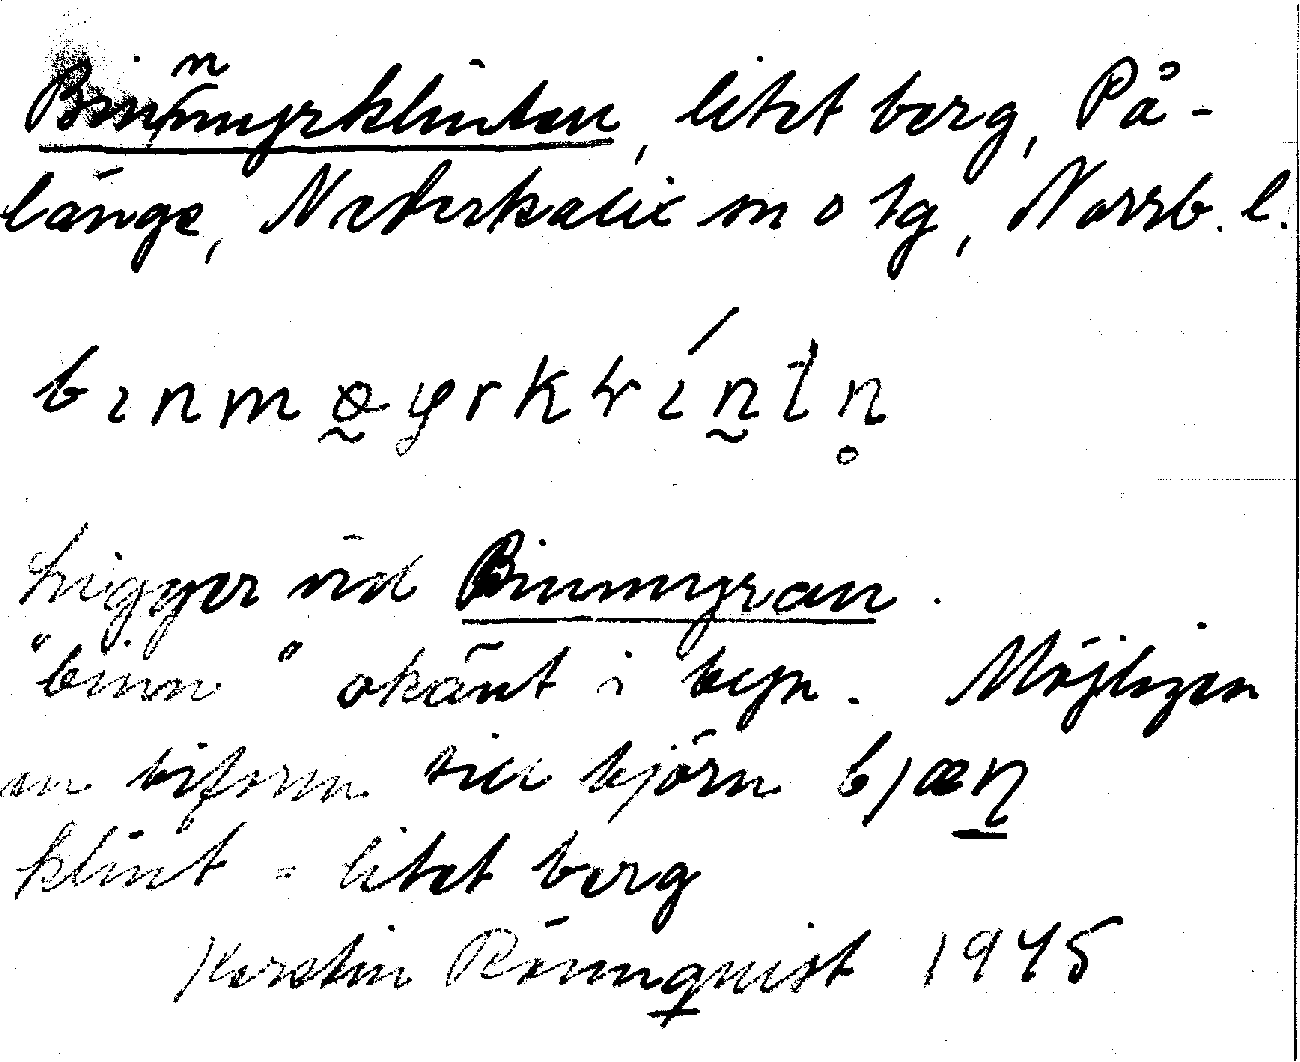 Binnmyrklinten, litet berg, På-
länge, Nederkalix sn o tg, Norrb. l.
Ligger vid Binmyran.
"binn" okänt i byn. Möjligen
en biform till björn bjæn
klint = litet berg
Kerstin Rönnquist 1945